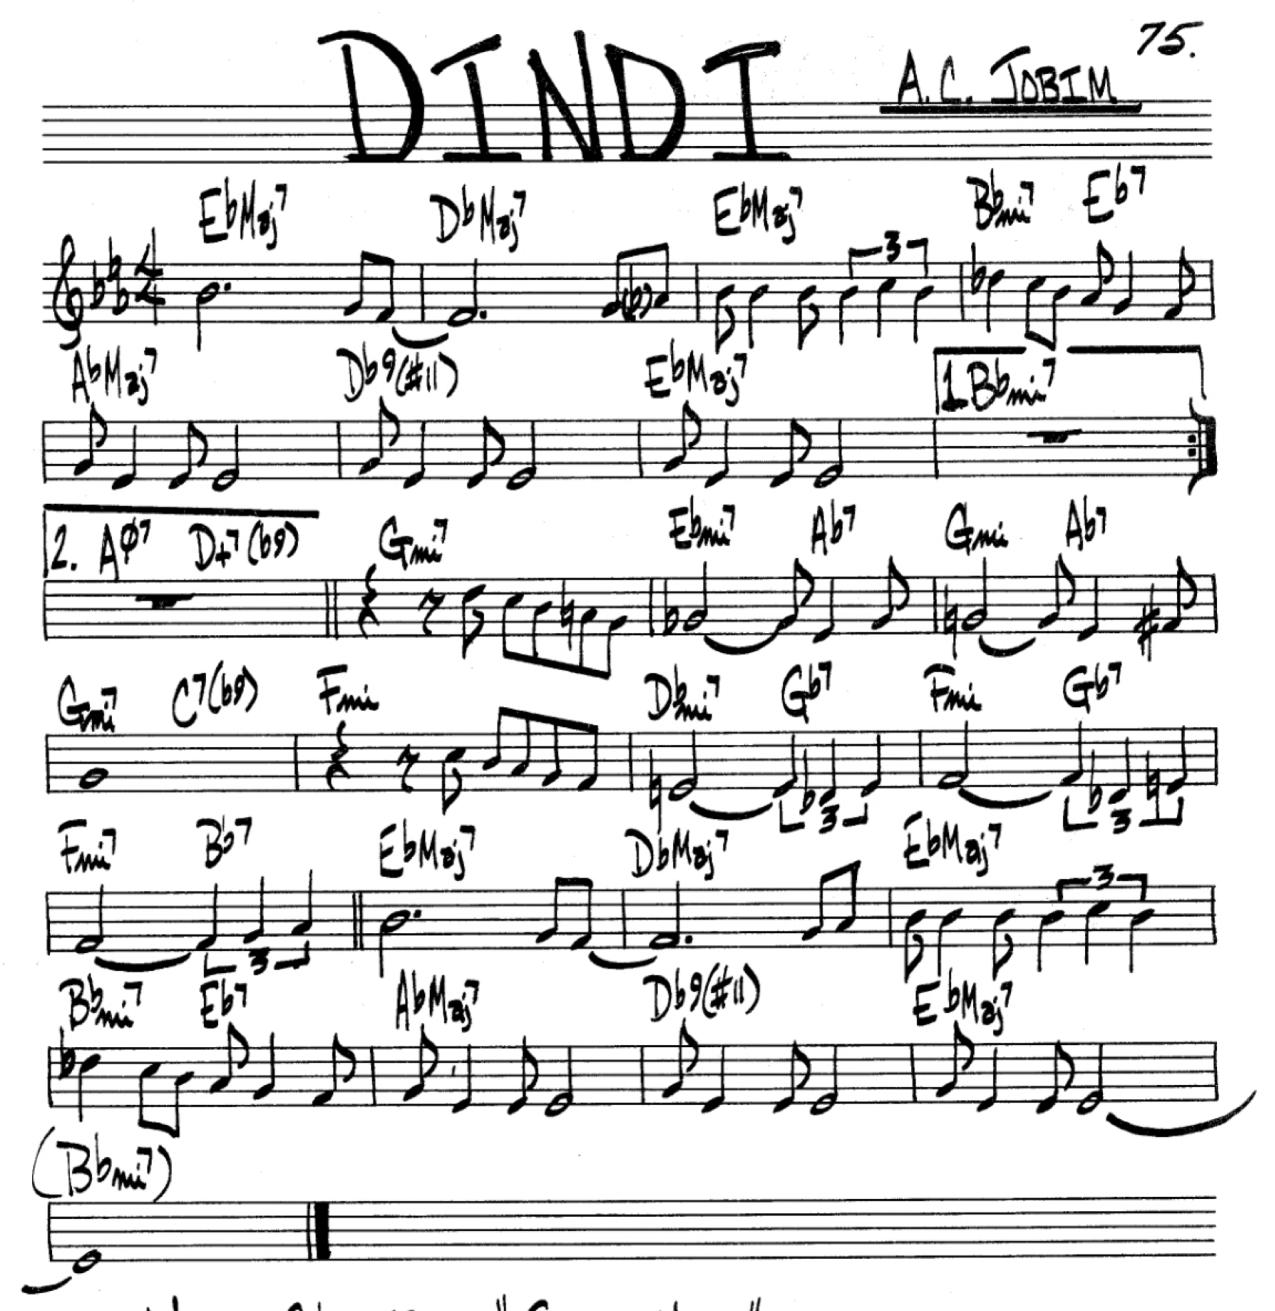 75.
DINDI
A.C. JOBIM
EbMaj7 DbMaj7 EbMaj7 Bbmi7 Eb7
4
4
3
AbMaj7 Db9(#11) EbMaj7 1. Bbmi7
2. AØ7 D+7(b9) Gmi7 Ebmi7 Ab7 Gmi Ab7
Gmi7 C7(b9) Fmi Dbmi7 Gb7 Fmi Gb7
3 3
Fmi7 Bb7 EbMaj7 DbMaj7 EbMaj7
3 3
Bbmi7 Eb7 AbMaj7 Db9(#11) EbMaj7
(Bbmi7)